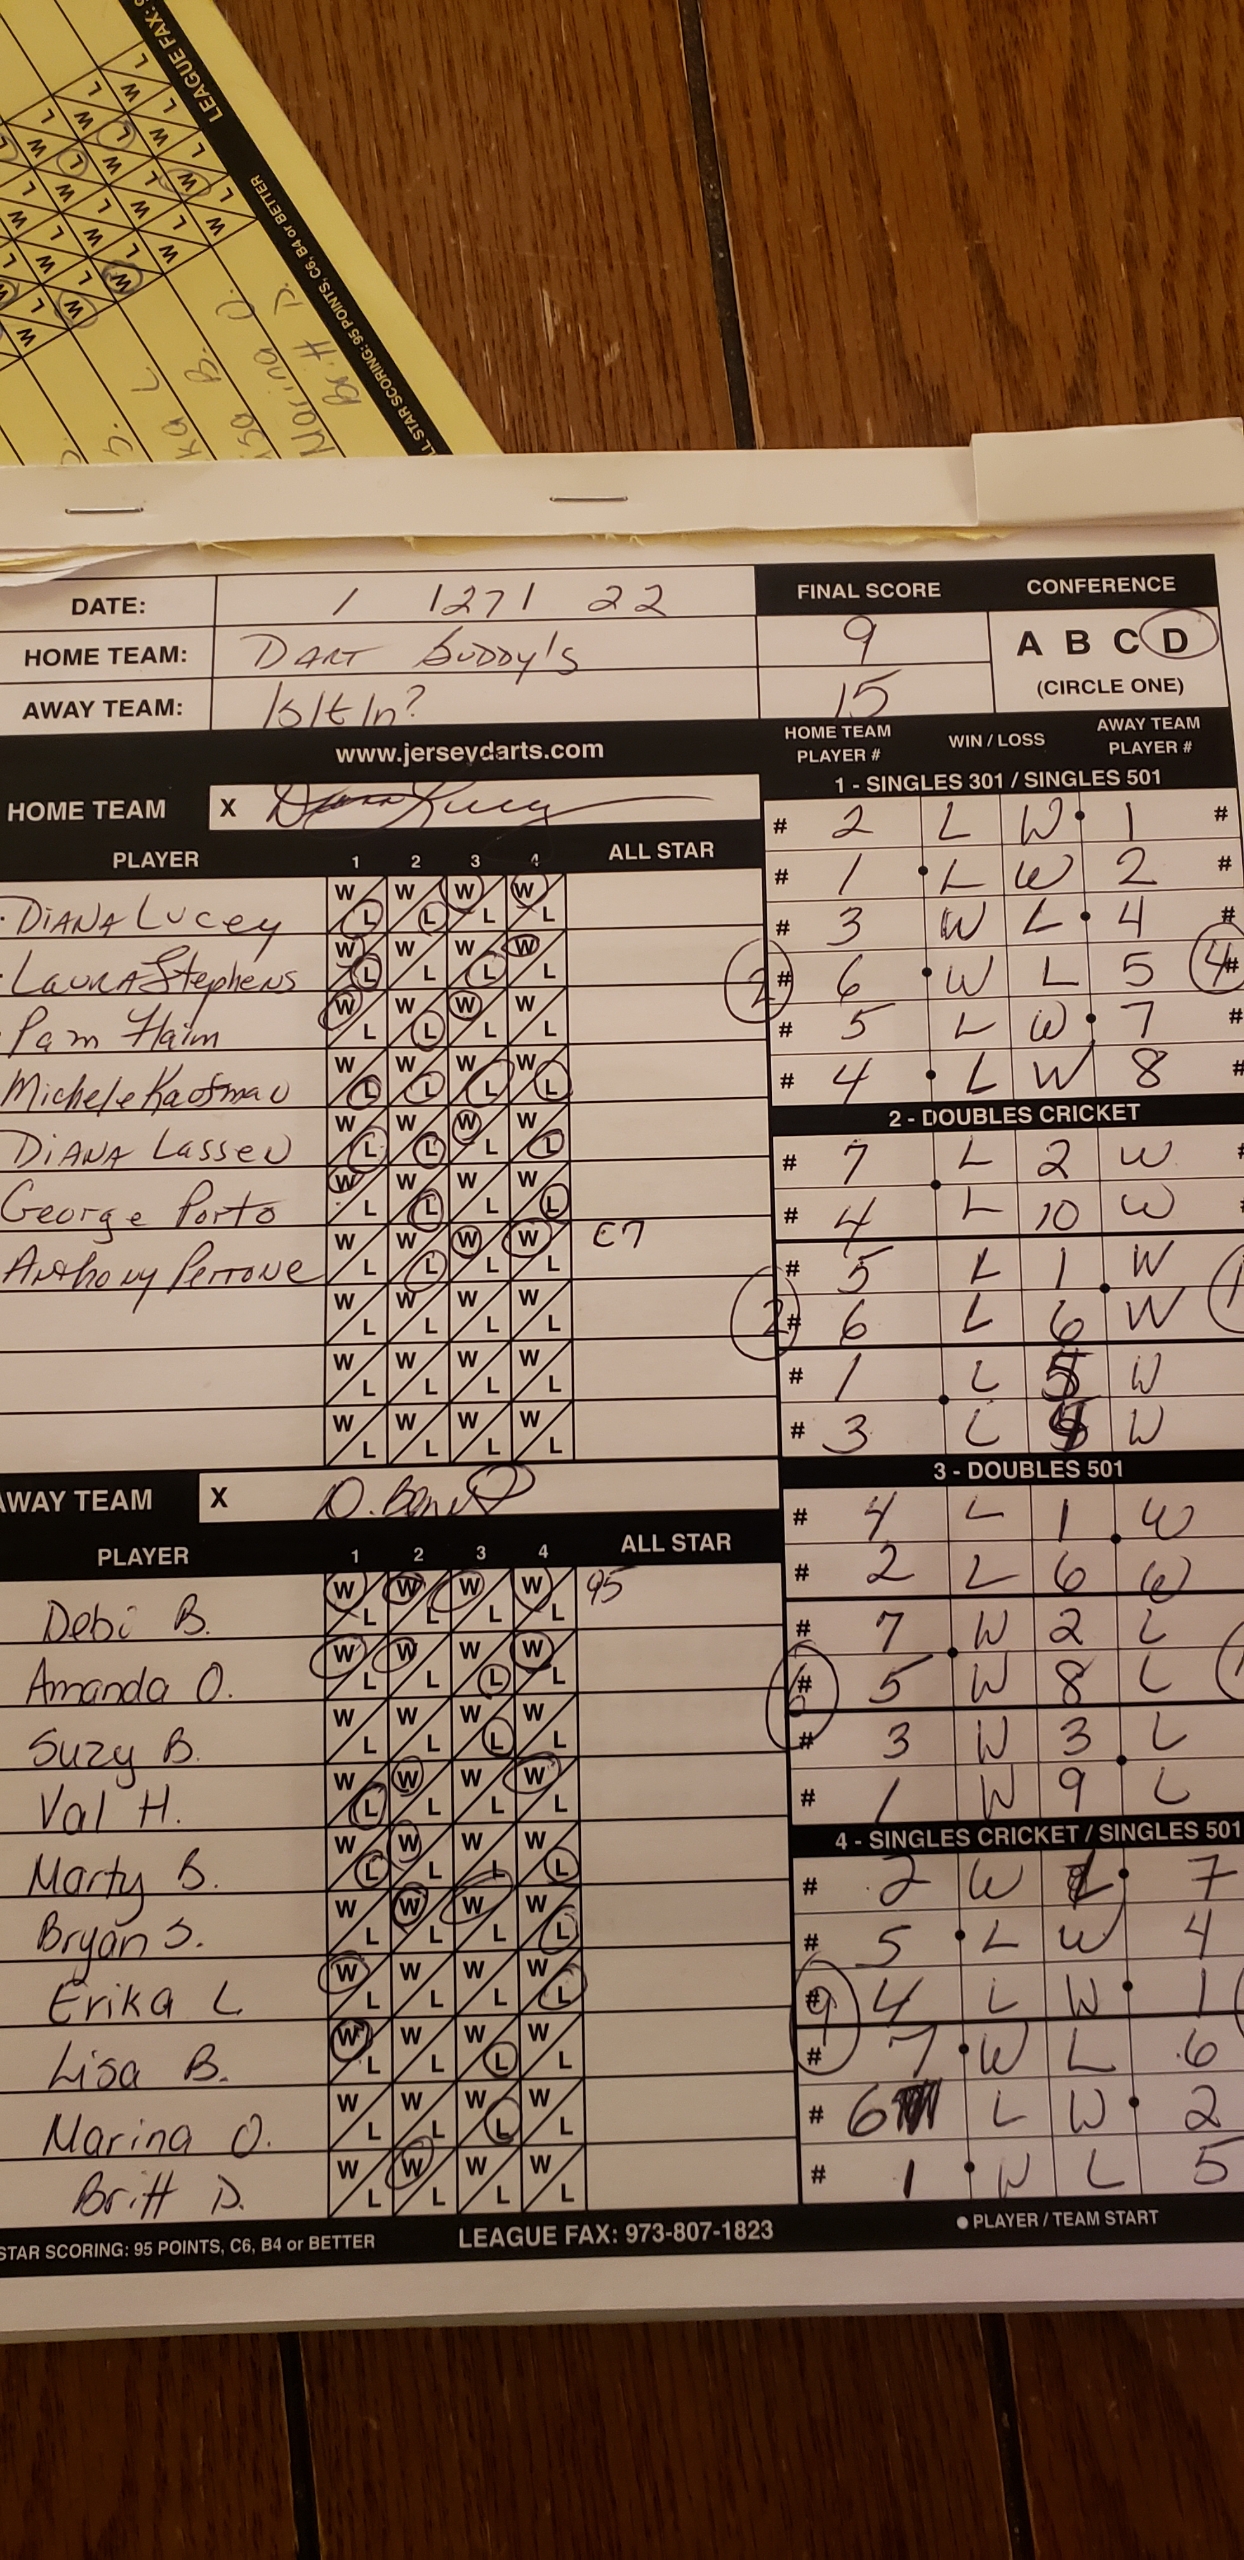 LEAGUE FAX: 9
ALL STAR SCORING: 95 POINTS, C6, B4 or BETTER
ka L
isa B.
Marina O.
Britt D.
DATE: 1 / 27 / 22
FINAL SCORE
CONFERENCE
HOME TEAM: DART buddy's
9
A B C D
AWAY TEAM: IsItIn?
15
(CIRCLE ONE)
www.jerseydarts.com
HOME TEAM X
PLAYER 1 2 3 4 ALL STAR
DIANA Lucey W L W L W L W L
LAURA Stephens W L W L W L W L
Pam Haim W L W L W L W L
Michele Kaofman W L W L W L W L
DIANA LASSEN W L W L W L W L
George Porto W L W L W L W L
Anthony Perrone W L W L W L W L C7
W L W L W L W L
W L W L W L W L
W L W L W L W L
AWAY TEAM X
PLAYER 1 2 3 4 ALL STAR
Debi B. W L W L W L W L 95
Amanda O. W L W L W L W L
Suzy B. W L W L W L W L
Val H. W L W L W L W L
Marty B. W L W L W L W L
Bryan S. W L W L W L W L
Erika L. W L W L W L W L
Lisa B. W L W L W L W L
Marina O. W L W L W L W L
Britt D. W L W L W L W L
STAR SCORING: 95 POINTS, C6, B4 or BETTER
LEAGUE FAX: 973-807-1823
HOME TEAM PLAYER #
WIN / LOSS
AWAY TEAM PLAYER #
1 - SINGLES 301 / SINGLES 501
# 2 L W 1 #
# 1 L W 2 #
# 3 W L 4 #
2 # 6 W L 5 4 #
# 5 L W 7 #
# 4 L W 8 #
2 - DOUBLES CRICKET
# 7 L 2 W
# 4 L 10 W
# 5 L 1 W
2 # 6 L 6 W
# 1 L 5 W
# 3 L 4 W
3 - DOUBLES 501
# 4 L 1 W
# 2 L 6 W
# 7 W 2 L
6 # 5 W 8 L
# 3 W 3 L
# 1 W 9 L
4 - SINGLES CRICKET / SINGLES 501
# 2 W L 7
# 5 L W 4
9 # 4 L W 1
# 7 W L 6
# 6 L W 2
# 1 W L 5
PLAYER / TEAM START